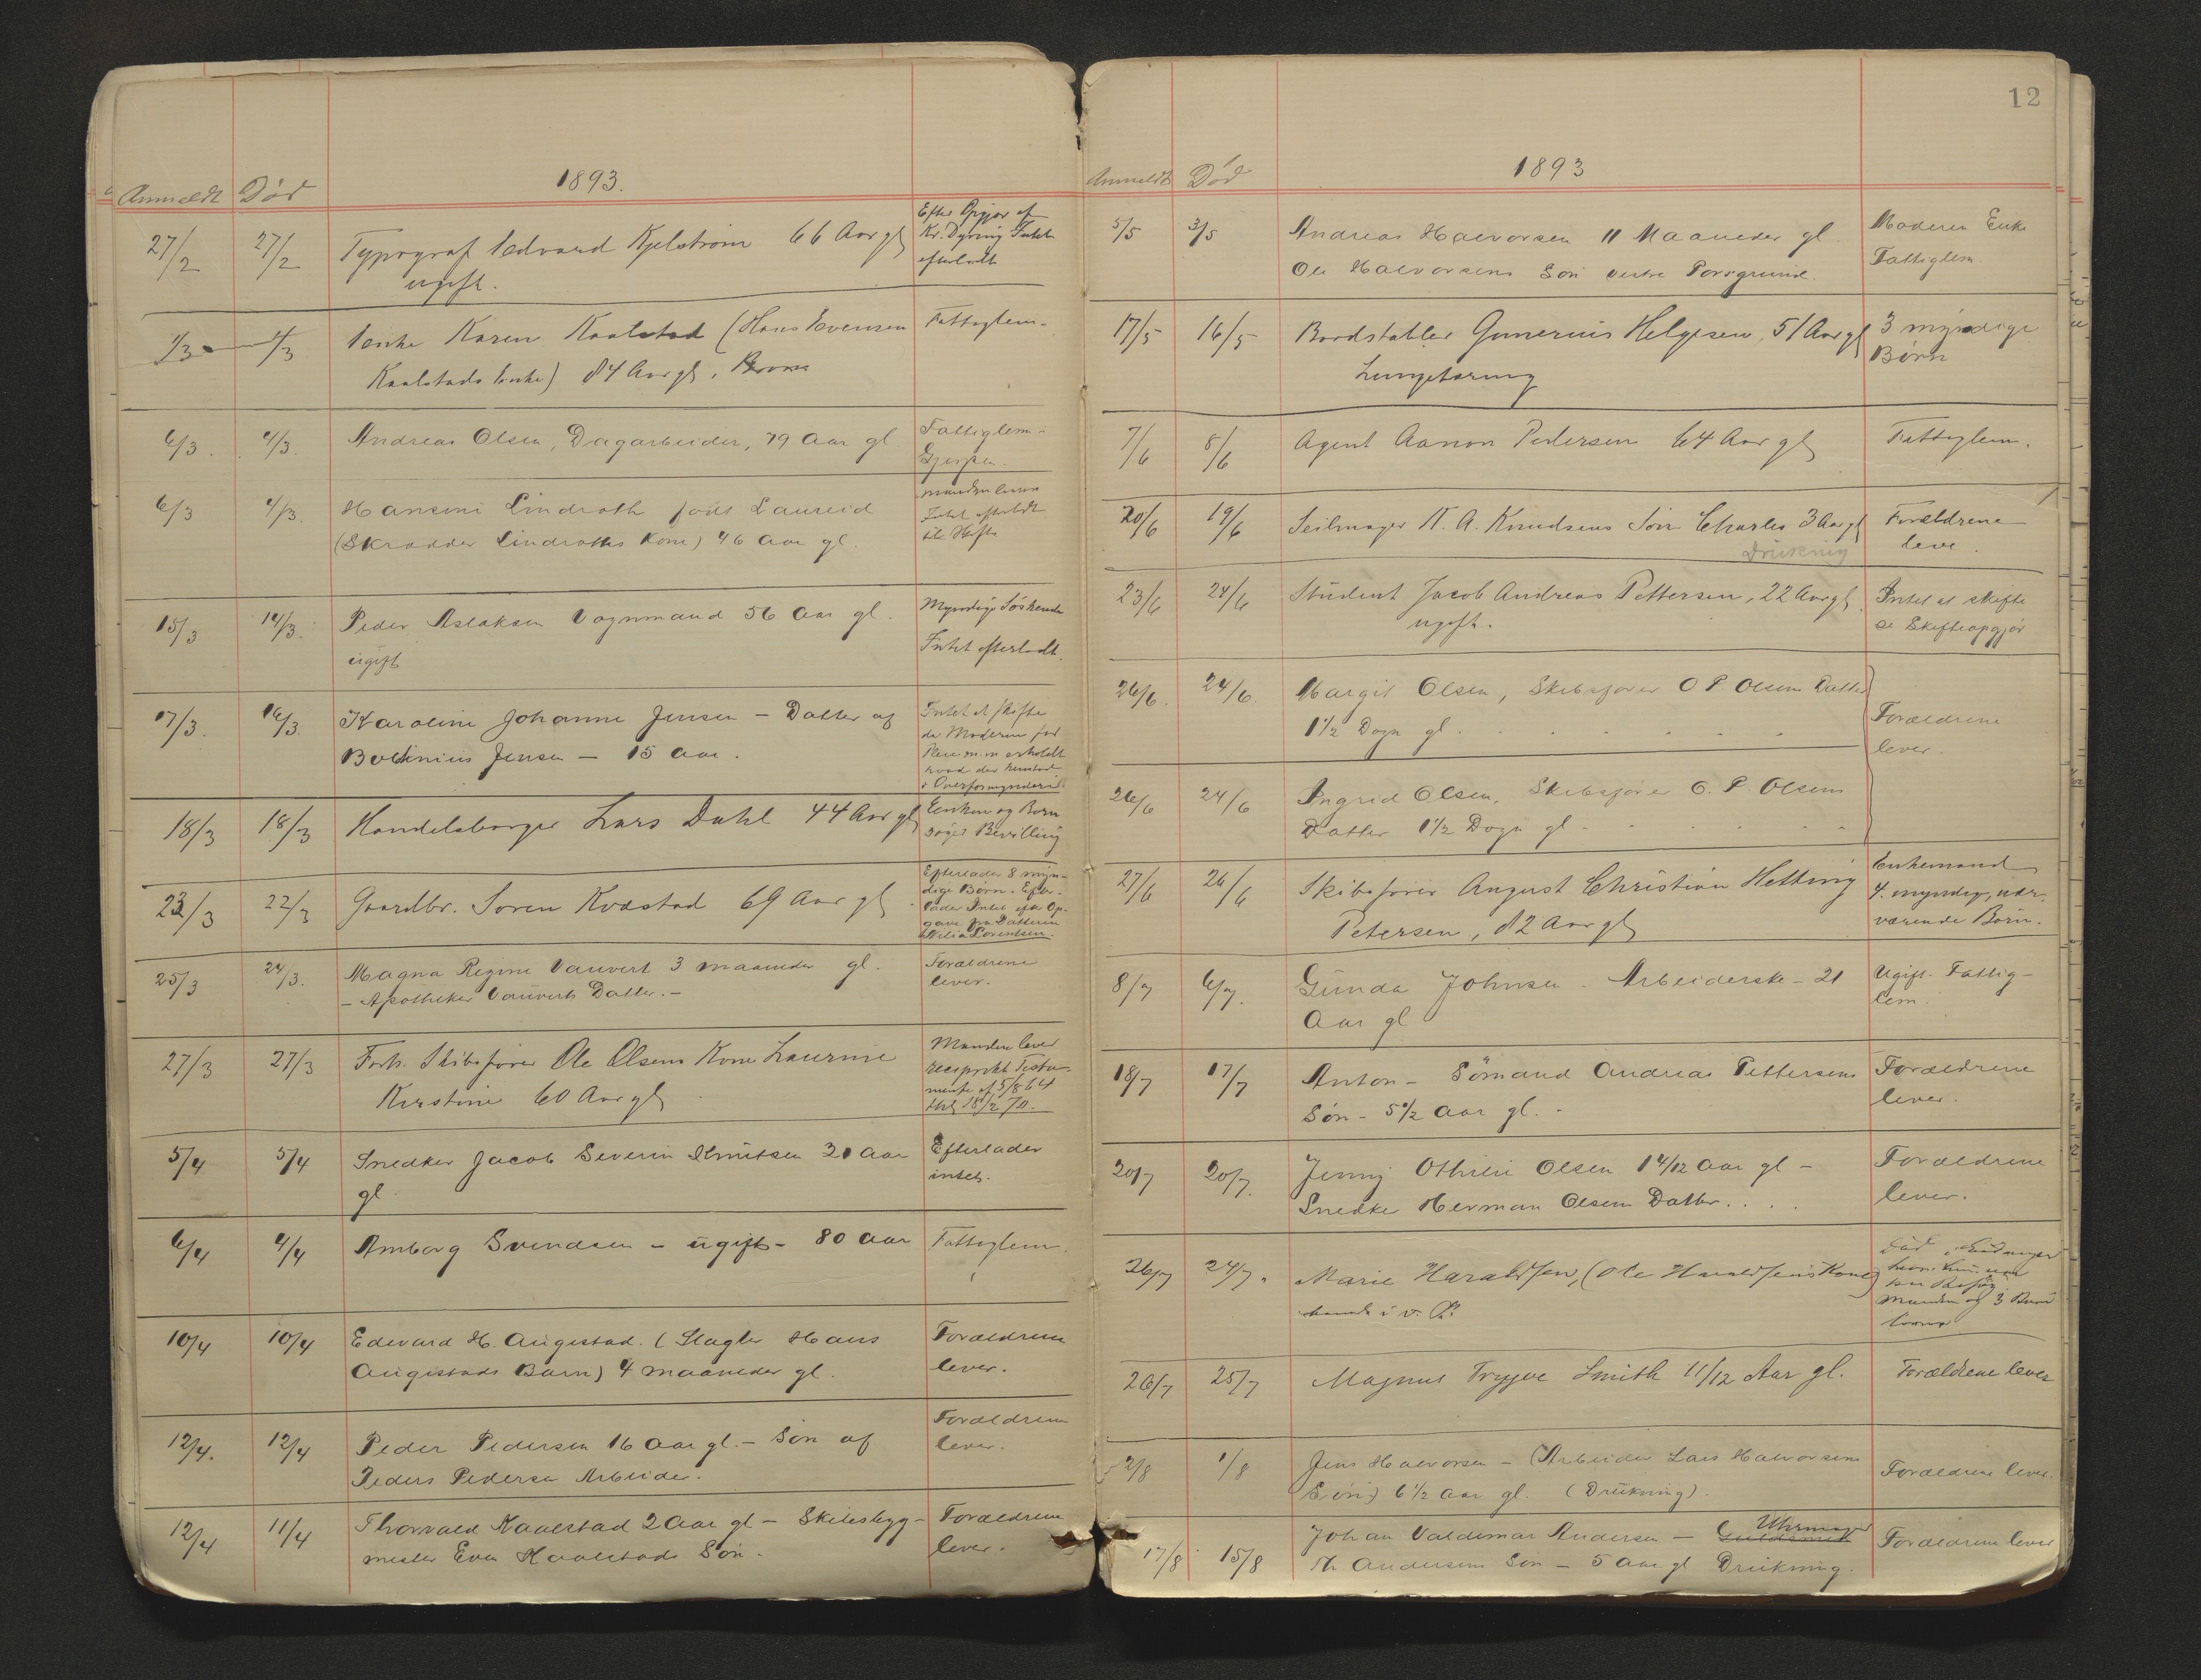 Anmeldt Död 1893.
27/2 27/2 Typograf Edvard Kjelström 66 Aar gl
ugift.
Efter Opgjör af
Kr. Dyring Intet
efterladt
1/3 1/3 Enke Karen Kaalstad (Hans Evensen
Kaalstads Enke) 84 Aar gl.
Fattiglem.
6/3. 4/3. Andreas Olsen, Dagarbeider, 79 Aar gl.
Fattiglem -
Gjerpen.
6/3 4/3. Hansine Lindroth født Laureid
(Skrædder Lindroths Kone) 46 Aar gl.
Manden lever
Intet efterladt
til Skifte
15/3 14/3. Peder Aslaksen Vognmand 56 Aar gl.
ugift
Myndige Söskende
Intet efterladt.
17/3. 16/3. Karoline Johanne Jensen - Datter af
Boletinius Jensen - 15 Aar.
Intet at skifte
da Moderen for
m.m. erholdt
hvad der henstod
i Overformynderiet
18/3 18/3 Handelsborger Lars Dahl 44 Aar gl
Enken og Börn
söger Bevilling
23/3 22/3 Gaardbr. Soren Kvæstad 69 Aar gl
Efterlader 8 myn-
dige Börn. Efter-
lader Intet efter Op-
gave fra Datteren
Lorentsen.
25/3 24/3. Magna Regine Vauvert 3 maaneder gl.
- Apotheker Vauverts Datter. -
Forældrene
lever.
27/3 27/3 Forh. Skibsförer Ole Olsens Kone Laurine
Kirstine 60 Aar gl
Manden lever
reciprokt Testa-
mente af 5/8 64
thl 18/2 70.
5/4 5/4 Snedker Jacob Severin Knutsen 20 Aar
gl.
Efterlader
intet.
6/4 4/4 Amborg Svendsen - ugift - 80 Aar
Fattiglem.
10/4 10/4 Edevard H. Augestad. (Slagter Hans
Augestads Barn) 4 maaneder gl.
Forældrene
lever.
12/4. 12/4 Peder Pedersen 16 Aar gl. - Sön af
Peders Pedersen Arbeider.
Forældrene
lever.
12/4 11/4 Thorvald Kaalstad 2 Aar gl - Skibsbygg-
mester Even Kaalstads Sön.
Forældrene
lever.
12
Anmeldt Död 1893
5/5 3/5 Andreas Halvorsen 11 Maaneder gl.
Ole Halvorsens Sön vestre Porsgrund.
Moderen Enke
Fattiglem
17/5 16/5 Bordstabler Gunerius Helgesen, 51 Aar gl
Lungetæring
3 myndige
Börn
7/6 8/6 Agent Aanon Pedersen 64 Aar gl
Fattiglem.
20/6 19/6 Seilmager K. A. Knudsens Sön Charles 3 Aar gl
Drukning
Forældrene
leve.
23/6 24/6 Student Jacob Andreas Pettersen, 22 Aar gl.
ugift.
Intet at skifte
se Skifteopgjör
26/6. 24/6. Margit Olsen, Skibsförer O. P. Olsens Datter
1 1/2 Dögn gl.
Forældrene
lever.
26/6 24/6 Ingrid Olsen, Skibsförer O. P. Olsens
Datter 1 1/2 Dögn gl.
27/6 26/6 Skibsförer August Christian Hetting
Petersen, 82 Aar gl
Enkemand
4 myndige, nær-
værende Börn.
8/7 6/7. Gunda Johnsen - Arbeiderske - 21
Aar gl
Ugift. Fattig-
lem.
18/7 17/7 Anton - Sömand Andreas Pettersens
Sön - 5 1/2 Aar gl. -
Forældrene
lever.
20/7 20/7. Jenny Othilie Olsen 1 4/12 Aar gl -
Snedker Herman Olsens Datter. . . .
Forældrene
lever.
26/7 24/7. Marie Haraldsen, (Ole Haraldsens Kone)
i v. P.
Död
hvor hun var
paa Besög
Manden og 3 Börn
lever
26/7 25/7 Magnus Trygve Smith 11/12 Aar gl.
Forældrene lever
2/8 1/8 Jens Halvorsen - (Arbeider Lars Halvorsens
Sön) 6 1/2 Aar gl. (Drukning).
Forældrene lever.
17/8 15/8 Johan Valdemar Andersen - Guldsmed Uhrmager
Th. Andersens Sön - 5 Aar gl Drukning.
Forældrene lever